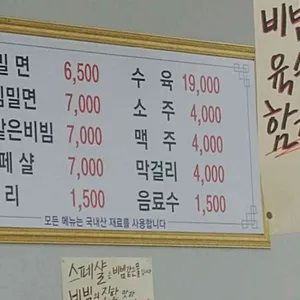 밀면 6,500 수육 19,000
빔밀면 7,000 소주 4,000
같은비빔 7,000 맥주 4,000
페샬 7,000 막걸리 4,000
리 1,500 음료수 1,500
모든 메뉴는 국내산 재료를 사용합니다
비빔
육수
함
스페샬은 비빔같은물
비빔의